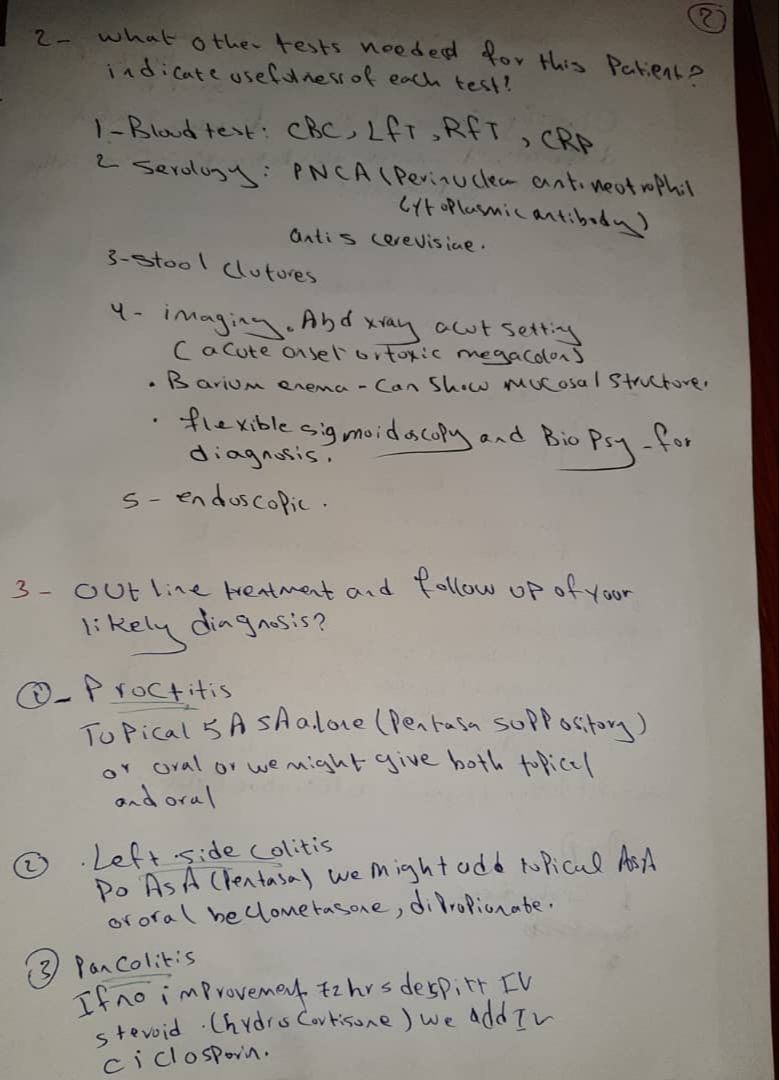 2
2- what other tests needed for this Patient?
indicate usefulness of each test!
1-Blood test: CBC, LFT, RFT, CRP
2 Serology: PNCA (Perinuclear anti neotrophil
Cytoplasmic antibody)
anti s cerevisiae.
3-stool clutures
4- imaging. Abd xray acut setting
(acute onset or toxic megacolon)
• Barium enema - Can show mucosal structure.
• flexible sigmoidoscopy and Biopsy - for
diagnosis.
5- endoscopic.
3- OUT line treatment and follow up of your
likely diagnosis?
①- Proctitis
Topical 5ASA alone (Pentasa suppository)
or oral or we might give both topical
and oral
② . Left side Colitis
Po ASA (Pentasa) we might add topical ASA
or oral beclometasone, dipropionate.
③ Pancolitis
If no improvement 72hrs despite IV
steroid. (hydrocortisone) we add IV
ciclosporin.